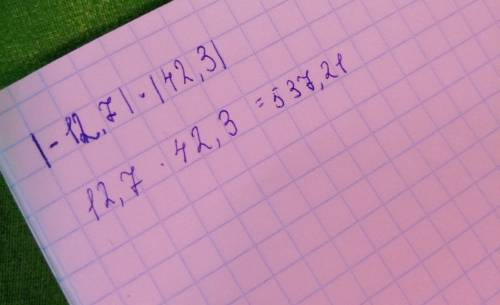 |-12,7| · |42,3|
12,7 · 42,3 = 537,21